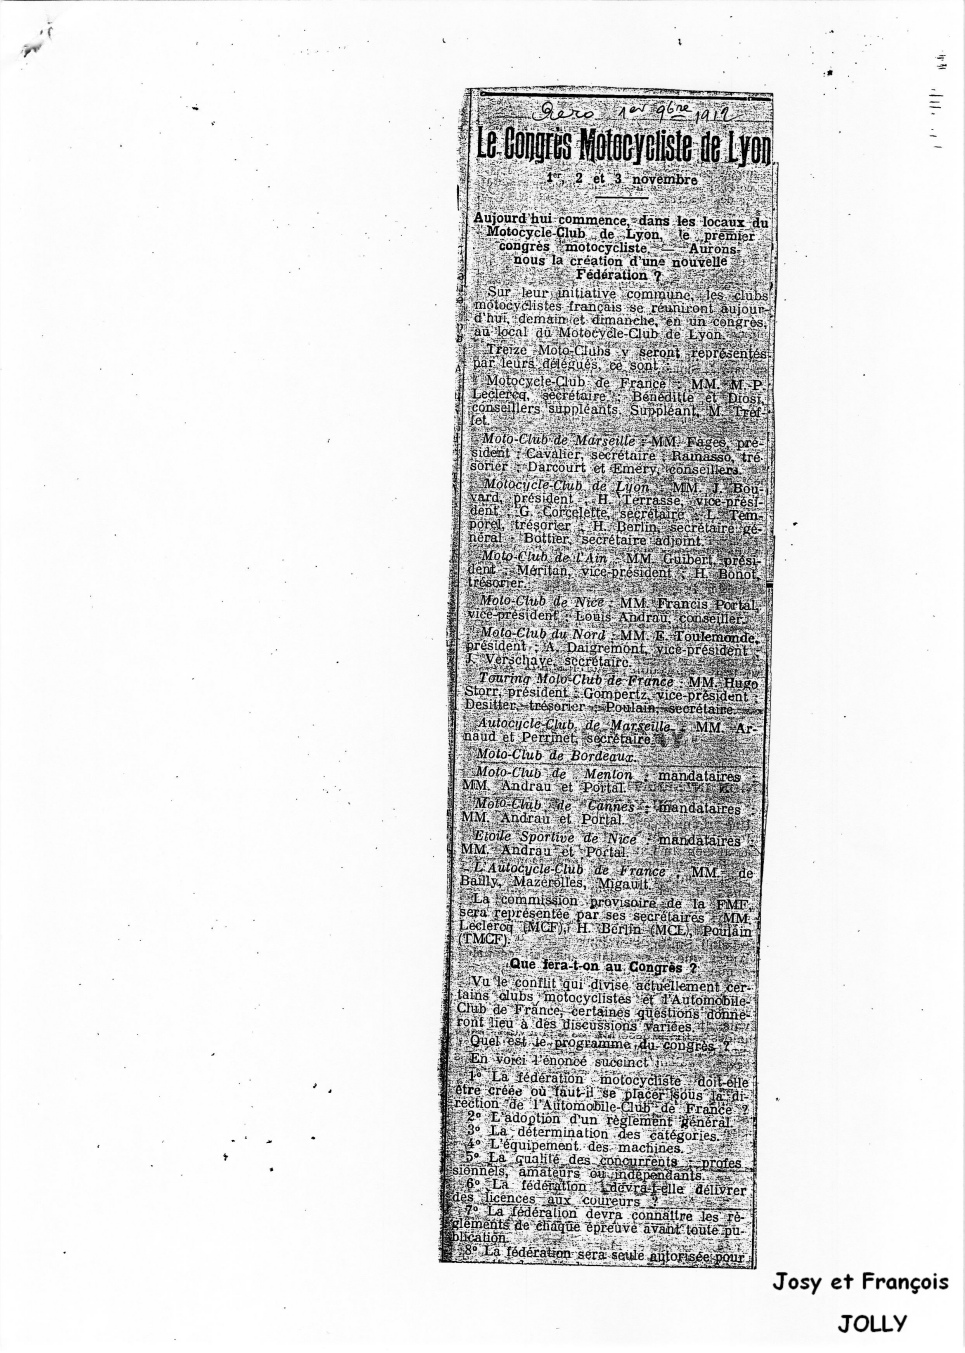 Aero 1er 9bre 1912
Le Congrès Motocycliste de Lyon
1er, 2 et 3 novembre
Aujourd'hui commence, dans les locaux du
Motocycle-Club de Lyon, le premier
congrès motocycliste. — Aurons-
nous la création d'une nouvelle
Fédération ?
Sur leur initiative commune, les clubs
motocyclistes français se réuniront aujour-
d'hui, demain et dimanche, en un congrès,
au local du Motocycle-Club de Lyon.
Treize Moto-Clubs y seront représentés
par leurs délégués, ce sont :
Motocycle-Club de France : MM. M.-P.
Leclercq, secrétaire ; Bénéditle et Diosi,
conseillers suppléants. Suppléant, M. Tref-
fet.
Moto-Club de Marseille : MM. Fages, pré-
sident ; Cavalier, secrétaire ; Ramasso, tré-
sorier ; Darcourt et Emery, conseillers.
Motocycle-Club de Lyon : MM. J. Bou-
vard, président ; H. Terrasse, vice-prési-
dent ; G. Corcelette, secrétaire ; L. Tem-
porel, trésorier ; H. Berlin, secrétaire gé-
néral ; Bottier, secrétaire adjoint.
Moto-Club de l'Ain : MM. Guibert, prési-
dent ; Méritan, vice-président ; H. Bonot,
trésorier.
Moto-Club de Nice : MM. Francis Portal,
vice-président ; Louis Andrau, conseiller.
Moto-Club du Nord : MM. E. Toulemonde,
président ; A. Daigremont, vice-président ;
J. Verschave, secrétaire.
Touring Moto-Club de France : MM. Hugo
Storr, président ; Gompertz, vice-président ;
Desitter, trésorier ; Poulain, secrétaire.
Autocycle-Club de Marseille : MM. Ar-
naud et Perrinet, secrétaire.
Moto-Club de Bordeaux.
Moto-Club de Menton : mandataires :
MM. Andrau et Portal.
Moto-Club de Cannes : mandataires :
MM. Andrau et Portal.
Etoile Sportive de Nice mandataires :
MM. Andrau et Portal.
L'Autocycle-Club de France : MM. de
Bailly, Mazerolles, Migault.
La commission provisoire de la FMF
sera représentée par ses secrétaires : MM.
Leclercq (MCF), H. Berlin (MCL), Poulain
(TMCF).
Que fera-t-on au Congrès ?
Vu le conflit qui divise actuellement cer-
tains clubs motocyclistes et l'Automobile-
Club de France, certaines questions donne-
ront lieu à des discussions variées.
Quel est le programme du congrès ?
En voici l'énoncé succinct :
1° La fédération motocycliste doit-elle
être créée où faut-il se placer sous la di-
rection de l'Automobile-Club de France ?
2° L'adoption d'un règlement général.
3° La détermination des catégories.
4° L'équipement des machines.
5° La qualité des concurrents : profes
sionnels, amateurs ou indépendants.
6° La fédération devra-t-elle délivrer
des licences aux coureurs ?
7° La fédération devra connaître les rè-
glements de chaque épreuve avant toute pu-
blication.
8° La fédération sera seule autorisée pour
Josy et François
JOLLY